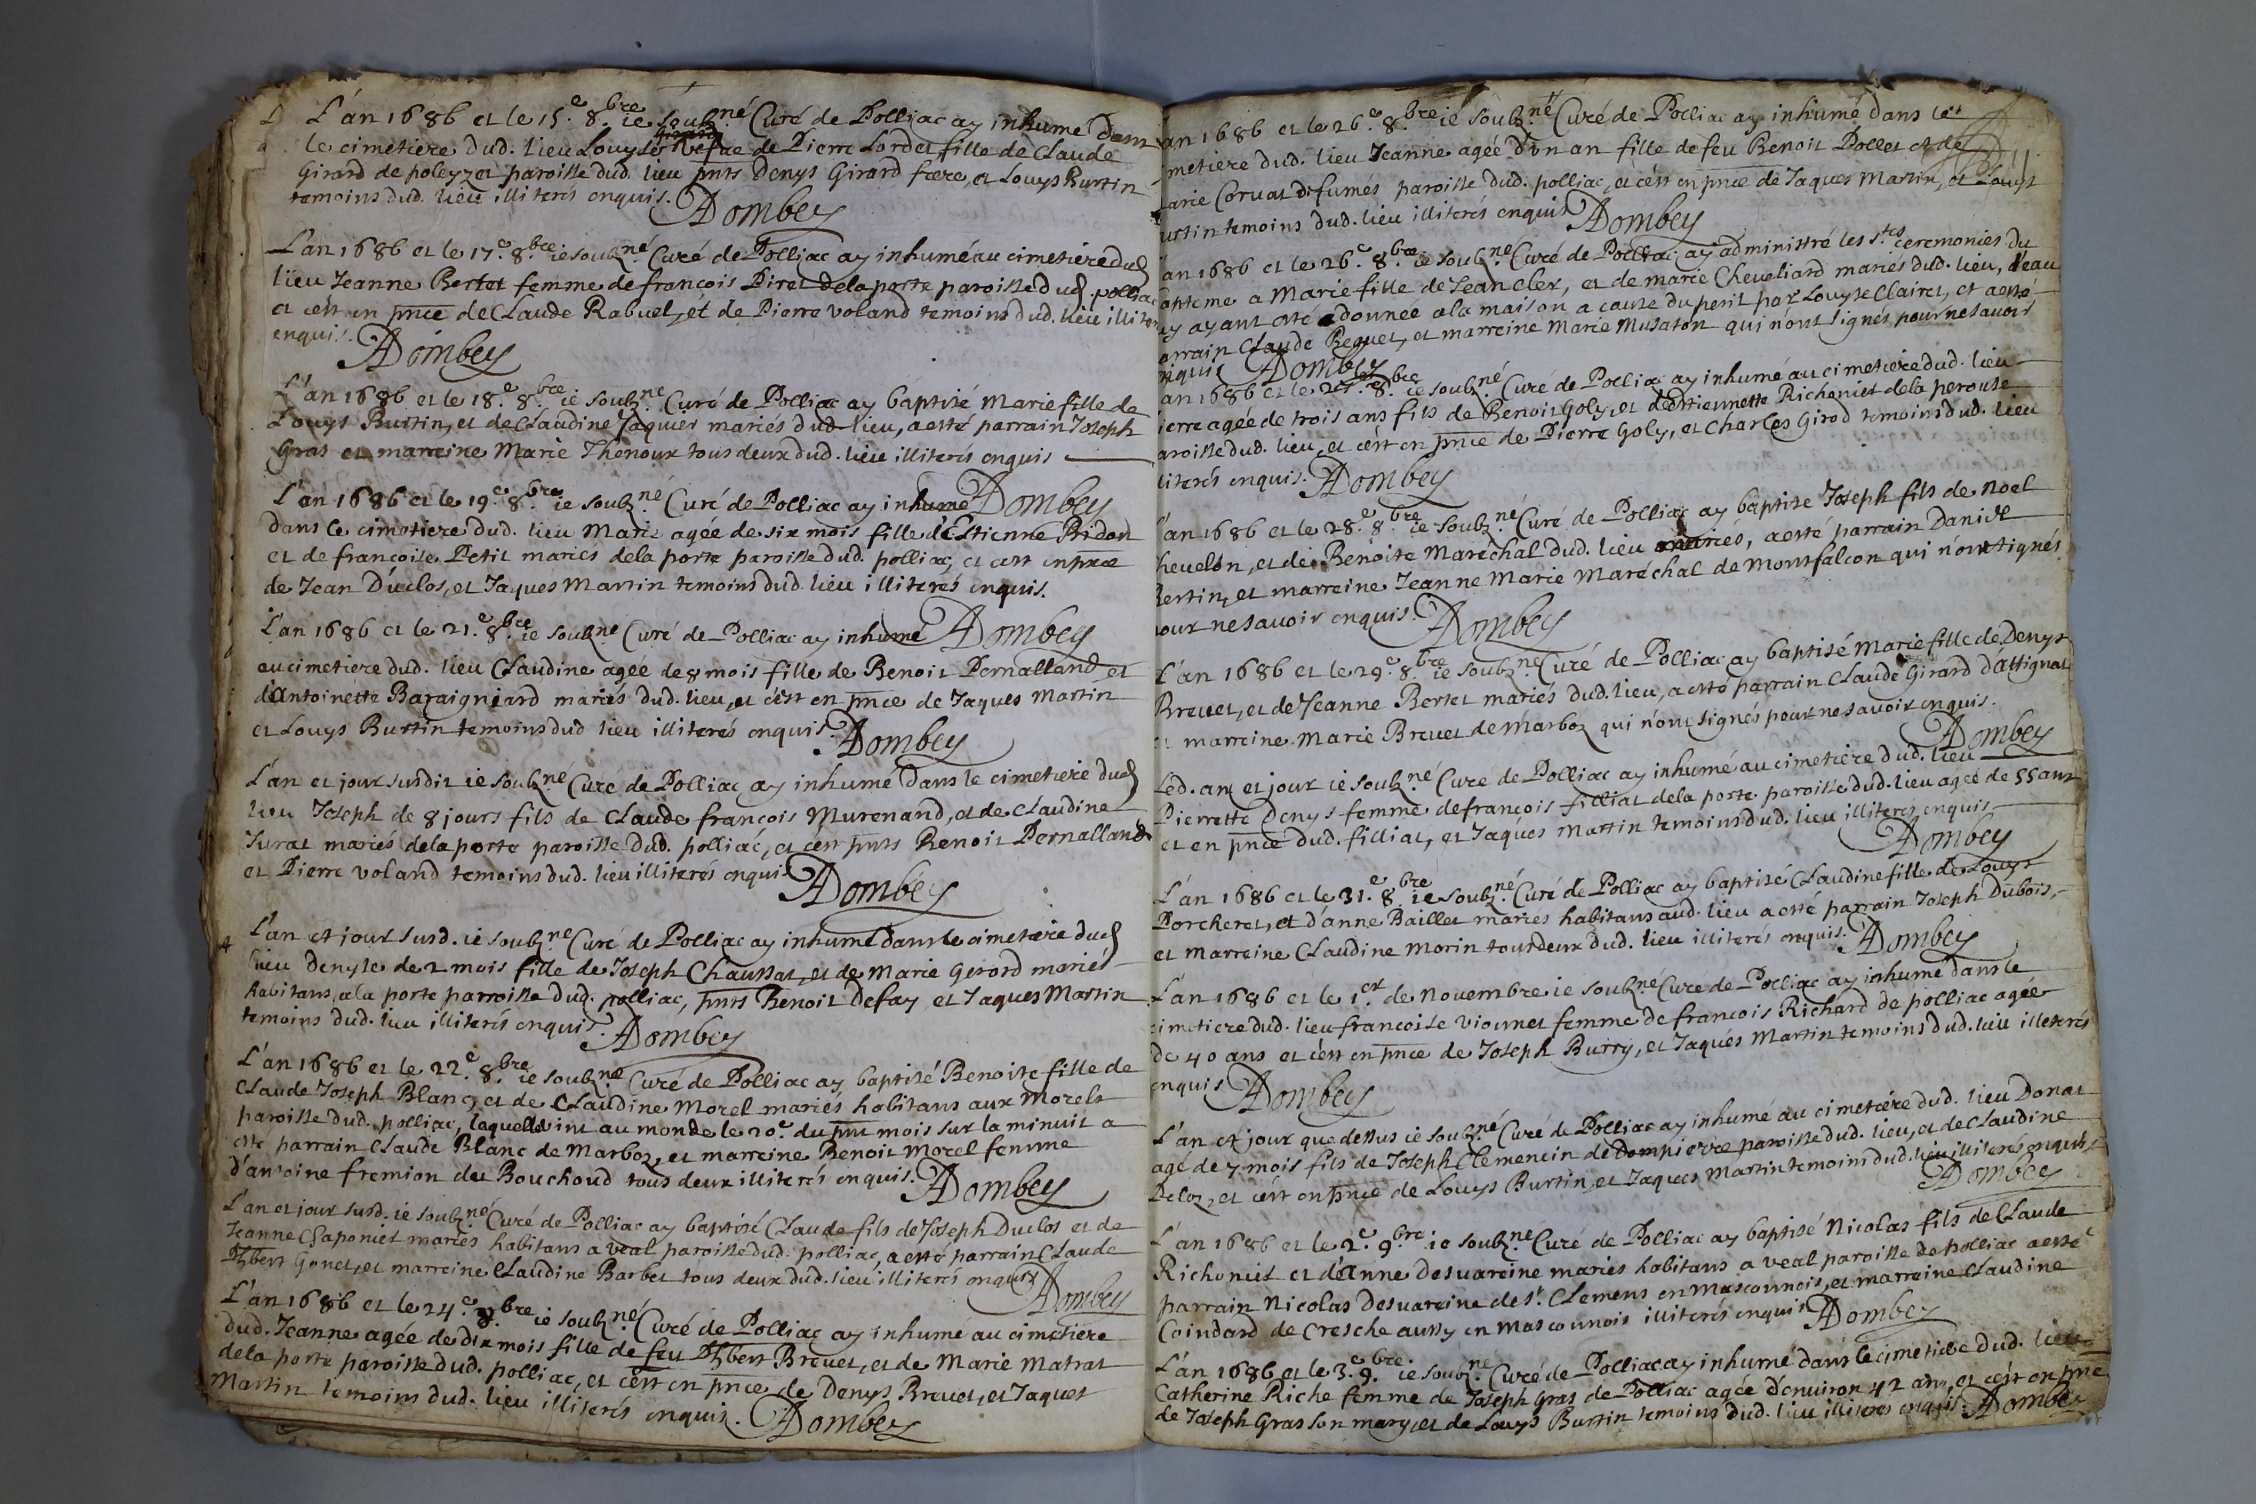 L'an 1686 et le 15.e 8.bre ie soubz.né Curé de Polliac ay inhumé dans
le cimetiere dud. lieu Louyse Girard vefue de Pierre Lordet fille de Claude
Girard de poleyzet paroisse dud. lieu pnts Denys Girard frere, et Louys Burtin
temoins dud. lieu illiterés enquis. ADombey
L'an 1686 et le 17.e 8.bre ie soubz.né Curé de Polliac ay inhumé au cimetiere dud
lieu Jeanne Bertet femme de françois Piret dela porte paroisse dud. polliac
et c'est en pnce de Claude Rabuel, et de Pierre voland temoins dud. lieu illiter
enquis. ADombey
L'an 1686 et le 18.e 8.bre ie soubz.né Curé de Polliac ay baptisé Marie fille de
Louys Burtin, et de Claudine Jaquier mariés dud. lieu, a esté parrain Joseph
Gras et marreine Marie Thenour tous deux dud. lieu illiterés enquis
ADombey
L'an 1686 et le 19.e 8.bre ie soubz.né Curé de Polliac ay inhumé
dans le cimetiere dud. lieu Marie agée de six mois fille d'Estienne Bridon
et de françoise Petit mariés dela porte paroisse dud. polliac, et c'est en pnce
de Jean Duclos, et Jaques Martin temoins dud. lieu illiterés enquis.
L'an 1686 et le 21.e 8.bre ie soubz.né Curé de Polliac ay inhumé ADombey
au cimetiere dud. lieu Claudine agée de 8 mois fille de Benoit Pernalland, et
d'Antoinette Baraigniard mariés dud. lieu, et c'est en pnce de Jaques Martin
et Louys Burtin temoins dud lieu illiterés enquis. ADombey
L'an et jour susdit ie soubz.né Curé de Polliac ay inhumé dans le cimetiere dud
lieu Joseph de 8 jours fils de Claude françois Murenand, et de Claudine
Jurat mariés dela porte paroisse dud. polliac, et c'est pnts Benoit Pernalland
et Pierre voland temoins dud. lieu illiterés enquis ADombey
L'an et jour susd. ie soubz.né Curé de Polliac ay inhumé dans le cimetiere dud
lieu Denyse de 2 mois fille de Joseph Chaussat, et de Marie Gerord mariés
habitans a la porte parroisse dud. polliac, pnts Benoit Defay et Jaques Martin
temoins dud. lieu illiterés enquis. ADombey
L'an 1686 et le 22.e 8.bre ie soubz.né Curé de Polliac ay baptisé Benoite fille de
Claude Joseph Blanc, et de Claudine Morel mariés habitans aux Morels
paroisse dud. polliac, laquelle vint au monde le 20.e du pnt mois sur la minuit a
esté parrain Claude Blanc de Marboz, et marreine Benoit Morel femme
d'antoine fremion du Bouchoud tous deux illiterés enquis. ADombey
L'an et jour susd. ie soubz.né Curé de Polliac ay baptisé Claude fils de Joseph Duclos et de
Jeanne Chaponiet mariés habitans a veal paroisse dud. polliac, a esté parrain Claude
Phbert Gonet, et marreine Claudine Barbet tous deux dud. lieu illiterés enquis
ADombey
L'an 1686 et le 24.e 8.bre ie soubz.né Curé de Polliac ay inhumé au cimetiere
dud. Jeanne agée de dix mois fille de feu Phbert Brevet, et de Marie Matrat
dela porte paroisse dud. polliac, et c'est en pnce de Denys Brevet, et Jaques
Martin temoins dud. lieu illiterés enquis. ADombey
an 1686 et le 26.e 8.bre ie soubz.né Curé de Polliac ay inhumé dans le
metiere dud. lieu Jeanne agée d'vn an fille de feu Benoit Pollet et de
arie Coruat defumés paroisse dud. polliac, et c'est en pnce de Jaques Martin, et Louys
urtin temoins dud. lieu illiterés enquis ADombey
an 1686 et le 26.e 8.bre ie soubz.né Curé de Polliac ay administré les s.tes ceremonies du
apteme a Marie fille de Jean Cler, et de marie Cheveliard mariés dud. lieu, l'eau
y ayant esté donnée a la maison a cause du peril par Louyse Clairet, et a esté
arrain Claude Beguet, et marreine Marie Musaton qui n'ont signés pour ne savoir
nquis ADombey
an 1686 et le 27.e 8.bre ie soubz.né Curé de Polliac ay inhumé au cimetiere dud. lieu
ierre agée de trois ans fils de Benoit Goly, et d'estiennette Richoniet dela perouse
aroisse dud. lieu, et c'est en pnce de Pierre Goly, et Charles Girod temoins dud. lieu
literés enquis. ADombey
l'an 1686 et le 28.e 8.bre ie soubz.né Curé de Polliac ay baptisé Joseph fils de Noel
hevelon, et de Benoite Maréchal dud. lieu mariés, a esté parrain Daniel
Bertin, et marreine Jeanne Marie Maréchal de Montfalcon qui n'ont signés
pour ne savoir enquis. ADombey
L'an 1686 et le 29.e 8.bre ie soubz.né Curé de Polliac ay baptisé Marie fille de Denys
Brevet, et de Jeanne Bertet mariés dud. lieu, a esté parrain Claude Girard d'attignat
et marreine Marie Brevet de Marboz qui n'ont signés pour ne savoir enquis.
ADombey
Led. an et jour ie soubz.né Curé de Polliac ay inhumé au cimetiere dud. lieu
Pierrette Denys femme de françois filliat dela porte paroisse dud. lieu agée de 55 ans
et en pnce dud. filliat, et Jaques Martin temoins dud. lieu illiterés enquis
ADombey
L'an 1686 et le 31.e 8.bre ie soubz.né Curé de Polliac ay baptisé Claudine fille de Louys
Porcheret, et d'anne Baillet mariés habitans aud. lieu a esté parrain Joseph Dubois,
et marreine Claudine Morin tous deux dud. lieu illiterés enquis. ADombey
L'an 1686 et le 1.er de Novembre ie soubz.né Curé de Polliac ay inhumé dans le
cimetiere dud. lieu francoise viounet femme de francois Richard de polliac agée
de 40 ans et c'est en pnce de Joseph Burry, et Jaques Martin temoins dud. lieu illiterés
enquis ADombey
L'an et jour que dessus ie soubz.né Curé de Polliac ay inhumé au cimetiere dud. lieu Donat
agé de 7 mois fils de Joseph Clemencin de Dompierre paroisse dud. lieu, et de Claudine
Deloz, et c'est en pnce de Louys Burtin, et Jaques Martin temoins dud. lieu illiterés enquis
ADombey
L'an 1686 et le 2.e 9.bre ie soubz.né Curé de Polliac ay baptisé Nicolas fils de Claude
Richoniet et d'anne Desvareine mariés habitans a veal paroisse de polliac a esté
parrain Nicolas Desvareine de s.t Clemens en Masconnois, et marreine Claudine
Coindard de Cresche aussy en Masconnois illiterés enquis ADombey
L'an 1686 et le 3.e 9.bre ie soubz.né Curé de Polliac ay inhumé dans le cimetiere dud. lieu
Catherine Riche femme de Joseph Gras de Polliac agée d'enuiron 42 ans, et c'est en pnce
de Joseph Gras son mary, et de Louys Burtin temoins dud. lieu illiterés enquis. ADombey